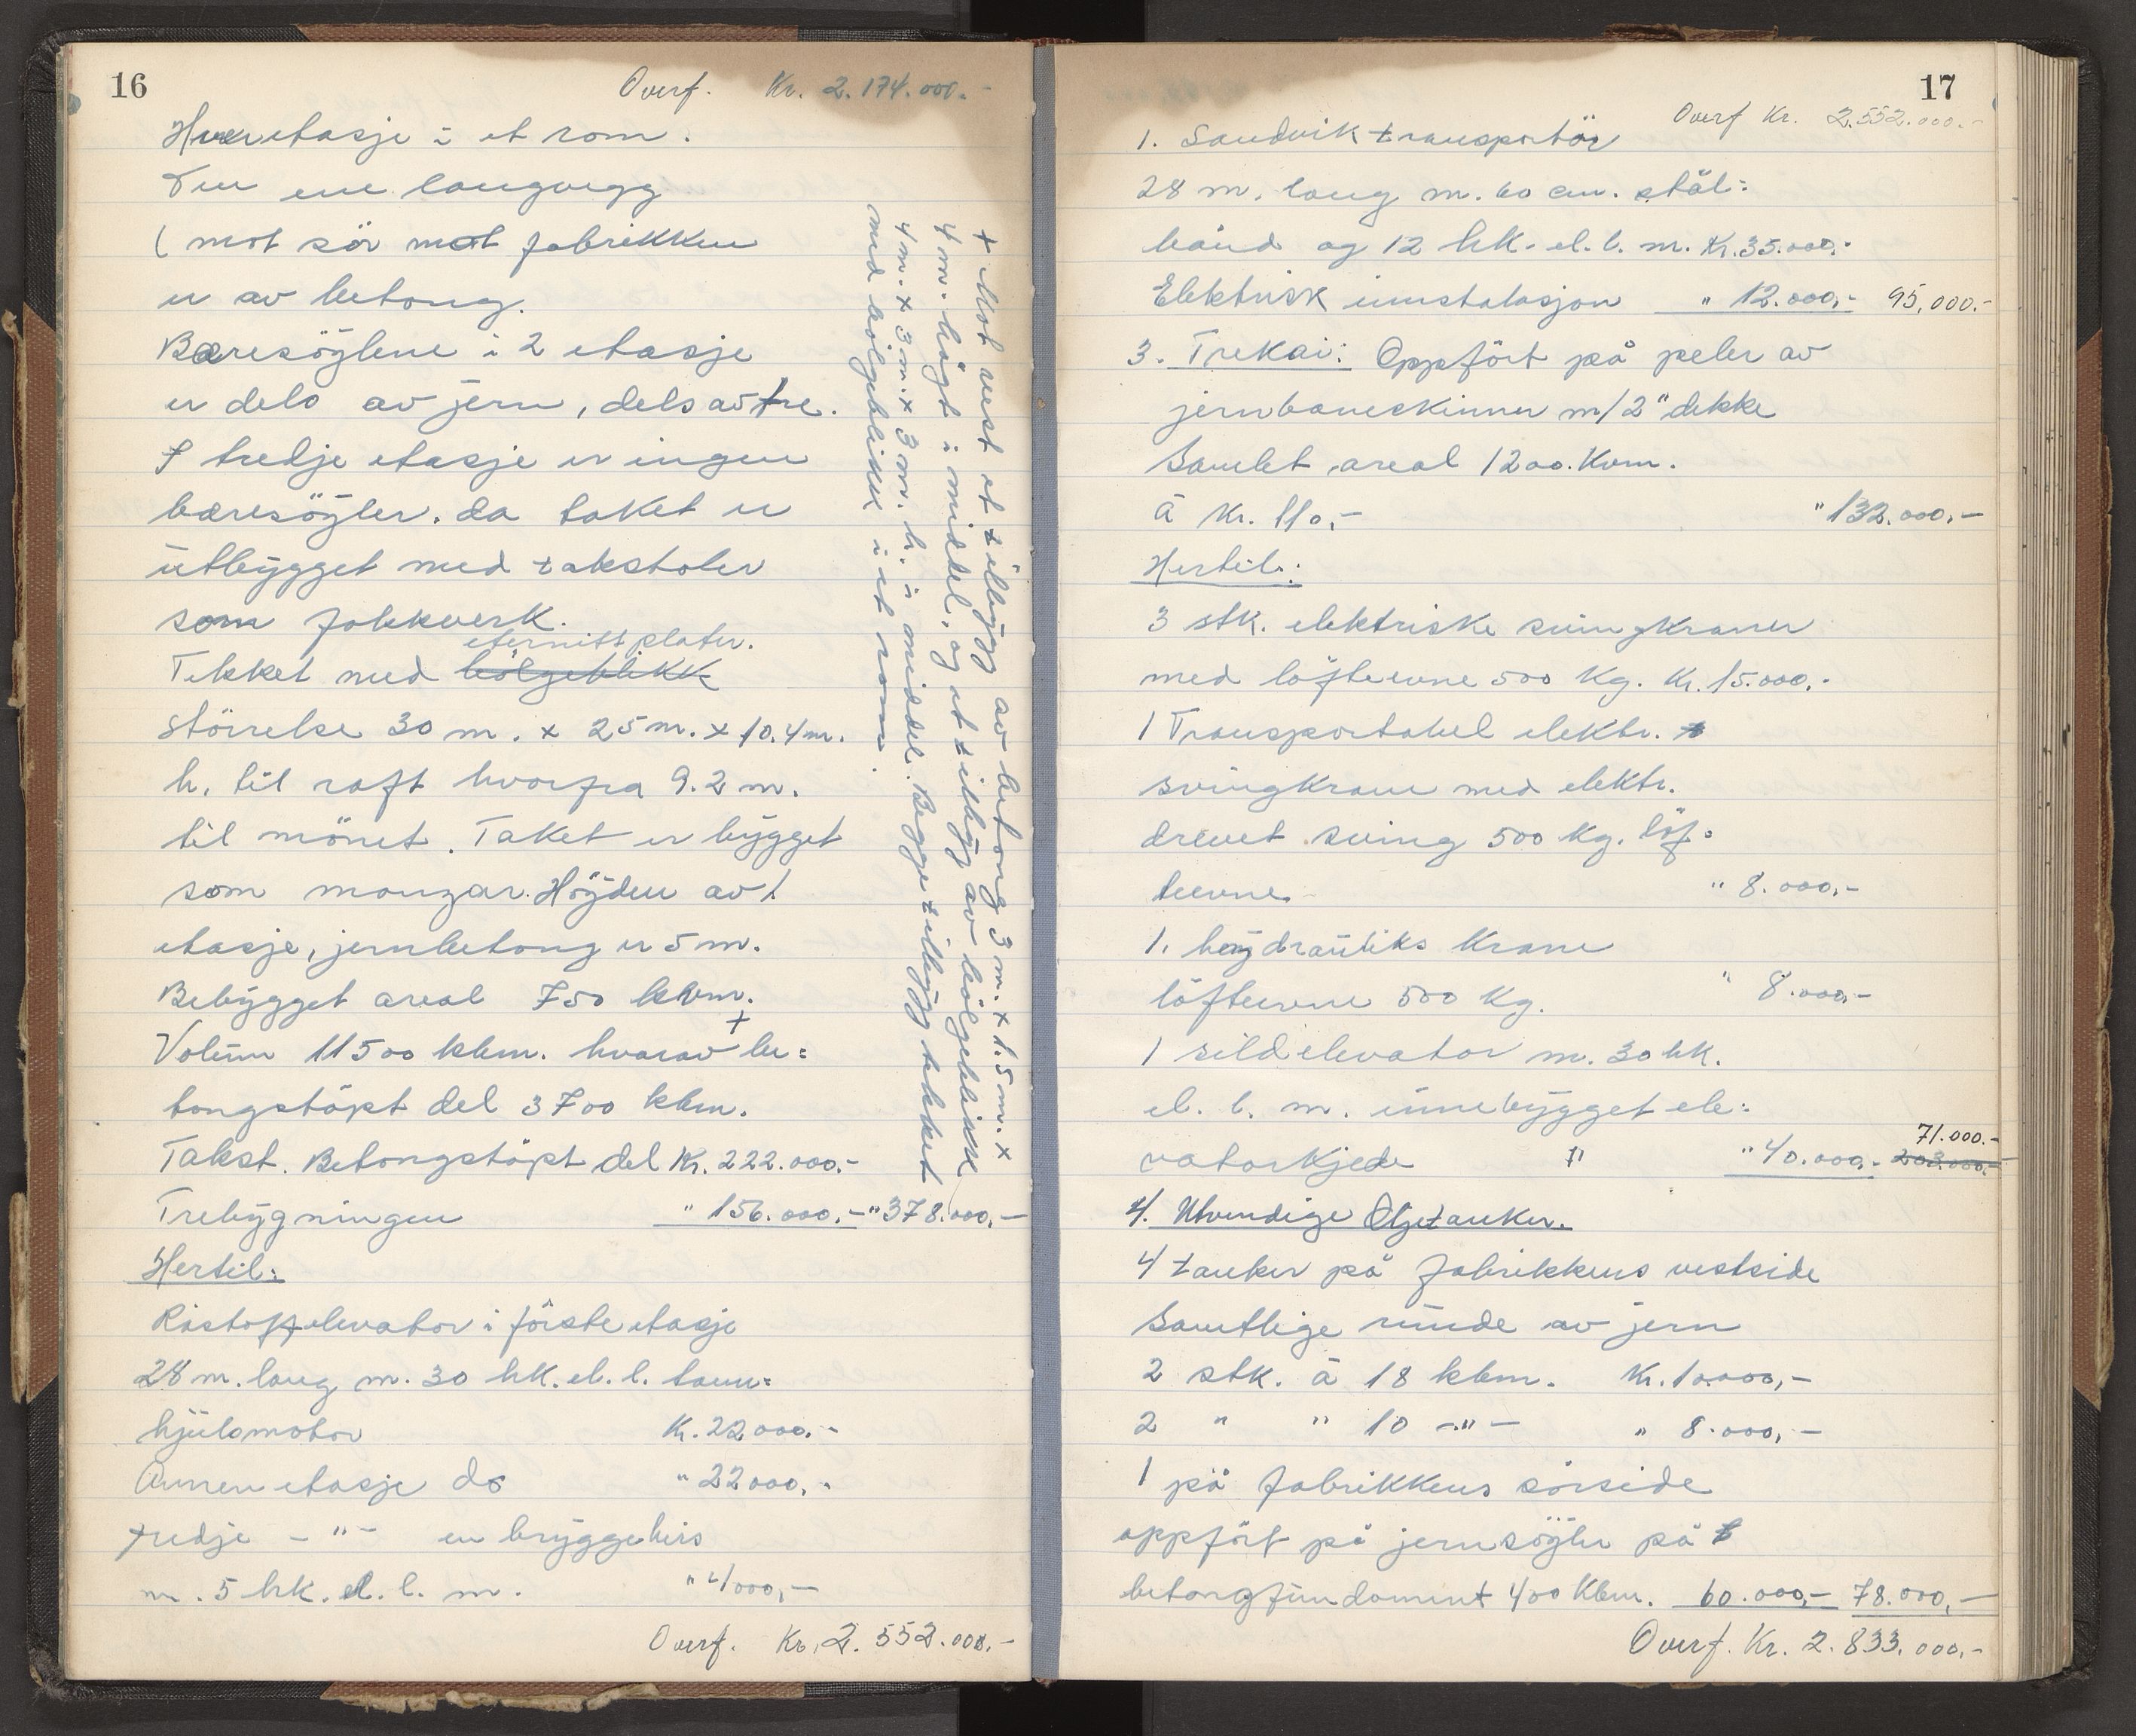 16
Overf. Kr. 2.174.000.-
Hver etasje i et rom.
Den ene langvegg
( mot sör mot fabrikken
er av betong.
Bæresöylene i 2 etasje
er dels av jern, dels av tre.
I tredje etasje er ingen
bæresöyler. da taket er
utbygget med takstoler
som fakkverk.
eternittplater.
Tekket med bölgeblikk
störrelse 30 m. x 25 m. x 10.4 m.
h. til raft hvorfra 9.2 m.
til mönet. Taket er bygget
som manzar. Höyden av 1
etasje, jernbetong er 5 m.
Bebygget areal 750 kvm.
+
Volum 11500 kbm. hvorav be=
tongstöpt del 3700 kbm.
Takst. Betongstöpt del Kr. 222.000.-
Trebygningen " 156.000.- " 378.000.-
Hertil:
Råstoffelevator i förste etasje
28 m. lang m. 30 hk. el. l. tann=
hjulsmotor Kr. 22000.-
Annen etasje do " 22000.-
tredje - " - en bryggeheis
m. 5 hk. el. l. m. " 4000,-
Overf. Kr. 2.552.000.-
+ Mot vest et tilbygg av betong 3 m. x 1.5 m. x
4 m. högt i middel, og et tilbygg av bölgeblikk
4 m. x 3 m. x 3 m. h. i middel. Begge tilbygg tekket
med bölgeblikk i et rom.
17
Overf Kr. 2.552.000.-
1. Sandvik transportör
28 m. lang m. 60 cm. stål=
bånd og 12 hk. el. l. m. Kr. 35.000.-
Elektrisk innstalasjon " 12.000,- 95,000.-
3. Trekai: Oppfört på peler av
jernbaneskinner m/2" dekke
Samlet areal 1200. Kvm.
å Kr. 110,- " 132.000,-
Hertil:
3 stk. elektriske svingkraner
med löfteevne 500 Kg. Kr. 15.000.-
1 Transportabel elektr.
svingkrane med elektr.
drevet sving 500 Kg. löf=
teevne " 8.000,-
1. hydrauliks Krane
löfteevne 500 Kg. " 8.000,-
1 sildelevator m. 30 hk.
el. l. m. innebygget ele=
71.000.-
vatorkjede " " 40.000,- 203.000.-
4. Utvendige Oljetanker.
4 tanker på fabrikkens vestside
Samtlige runde av jern
2 stk. å 18 kbm. Kr. 10.000,-
2 " " 10 - " - " 8.000,-
1 på fabrikkens sörside
oppfört på jernsöyler på
betongfundament 400 Kbm. 60.000,- 78.000,-
Overf. Kr. 2.833.000,-